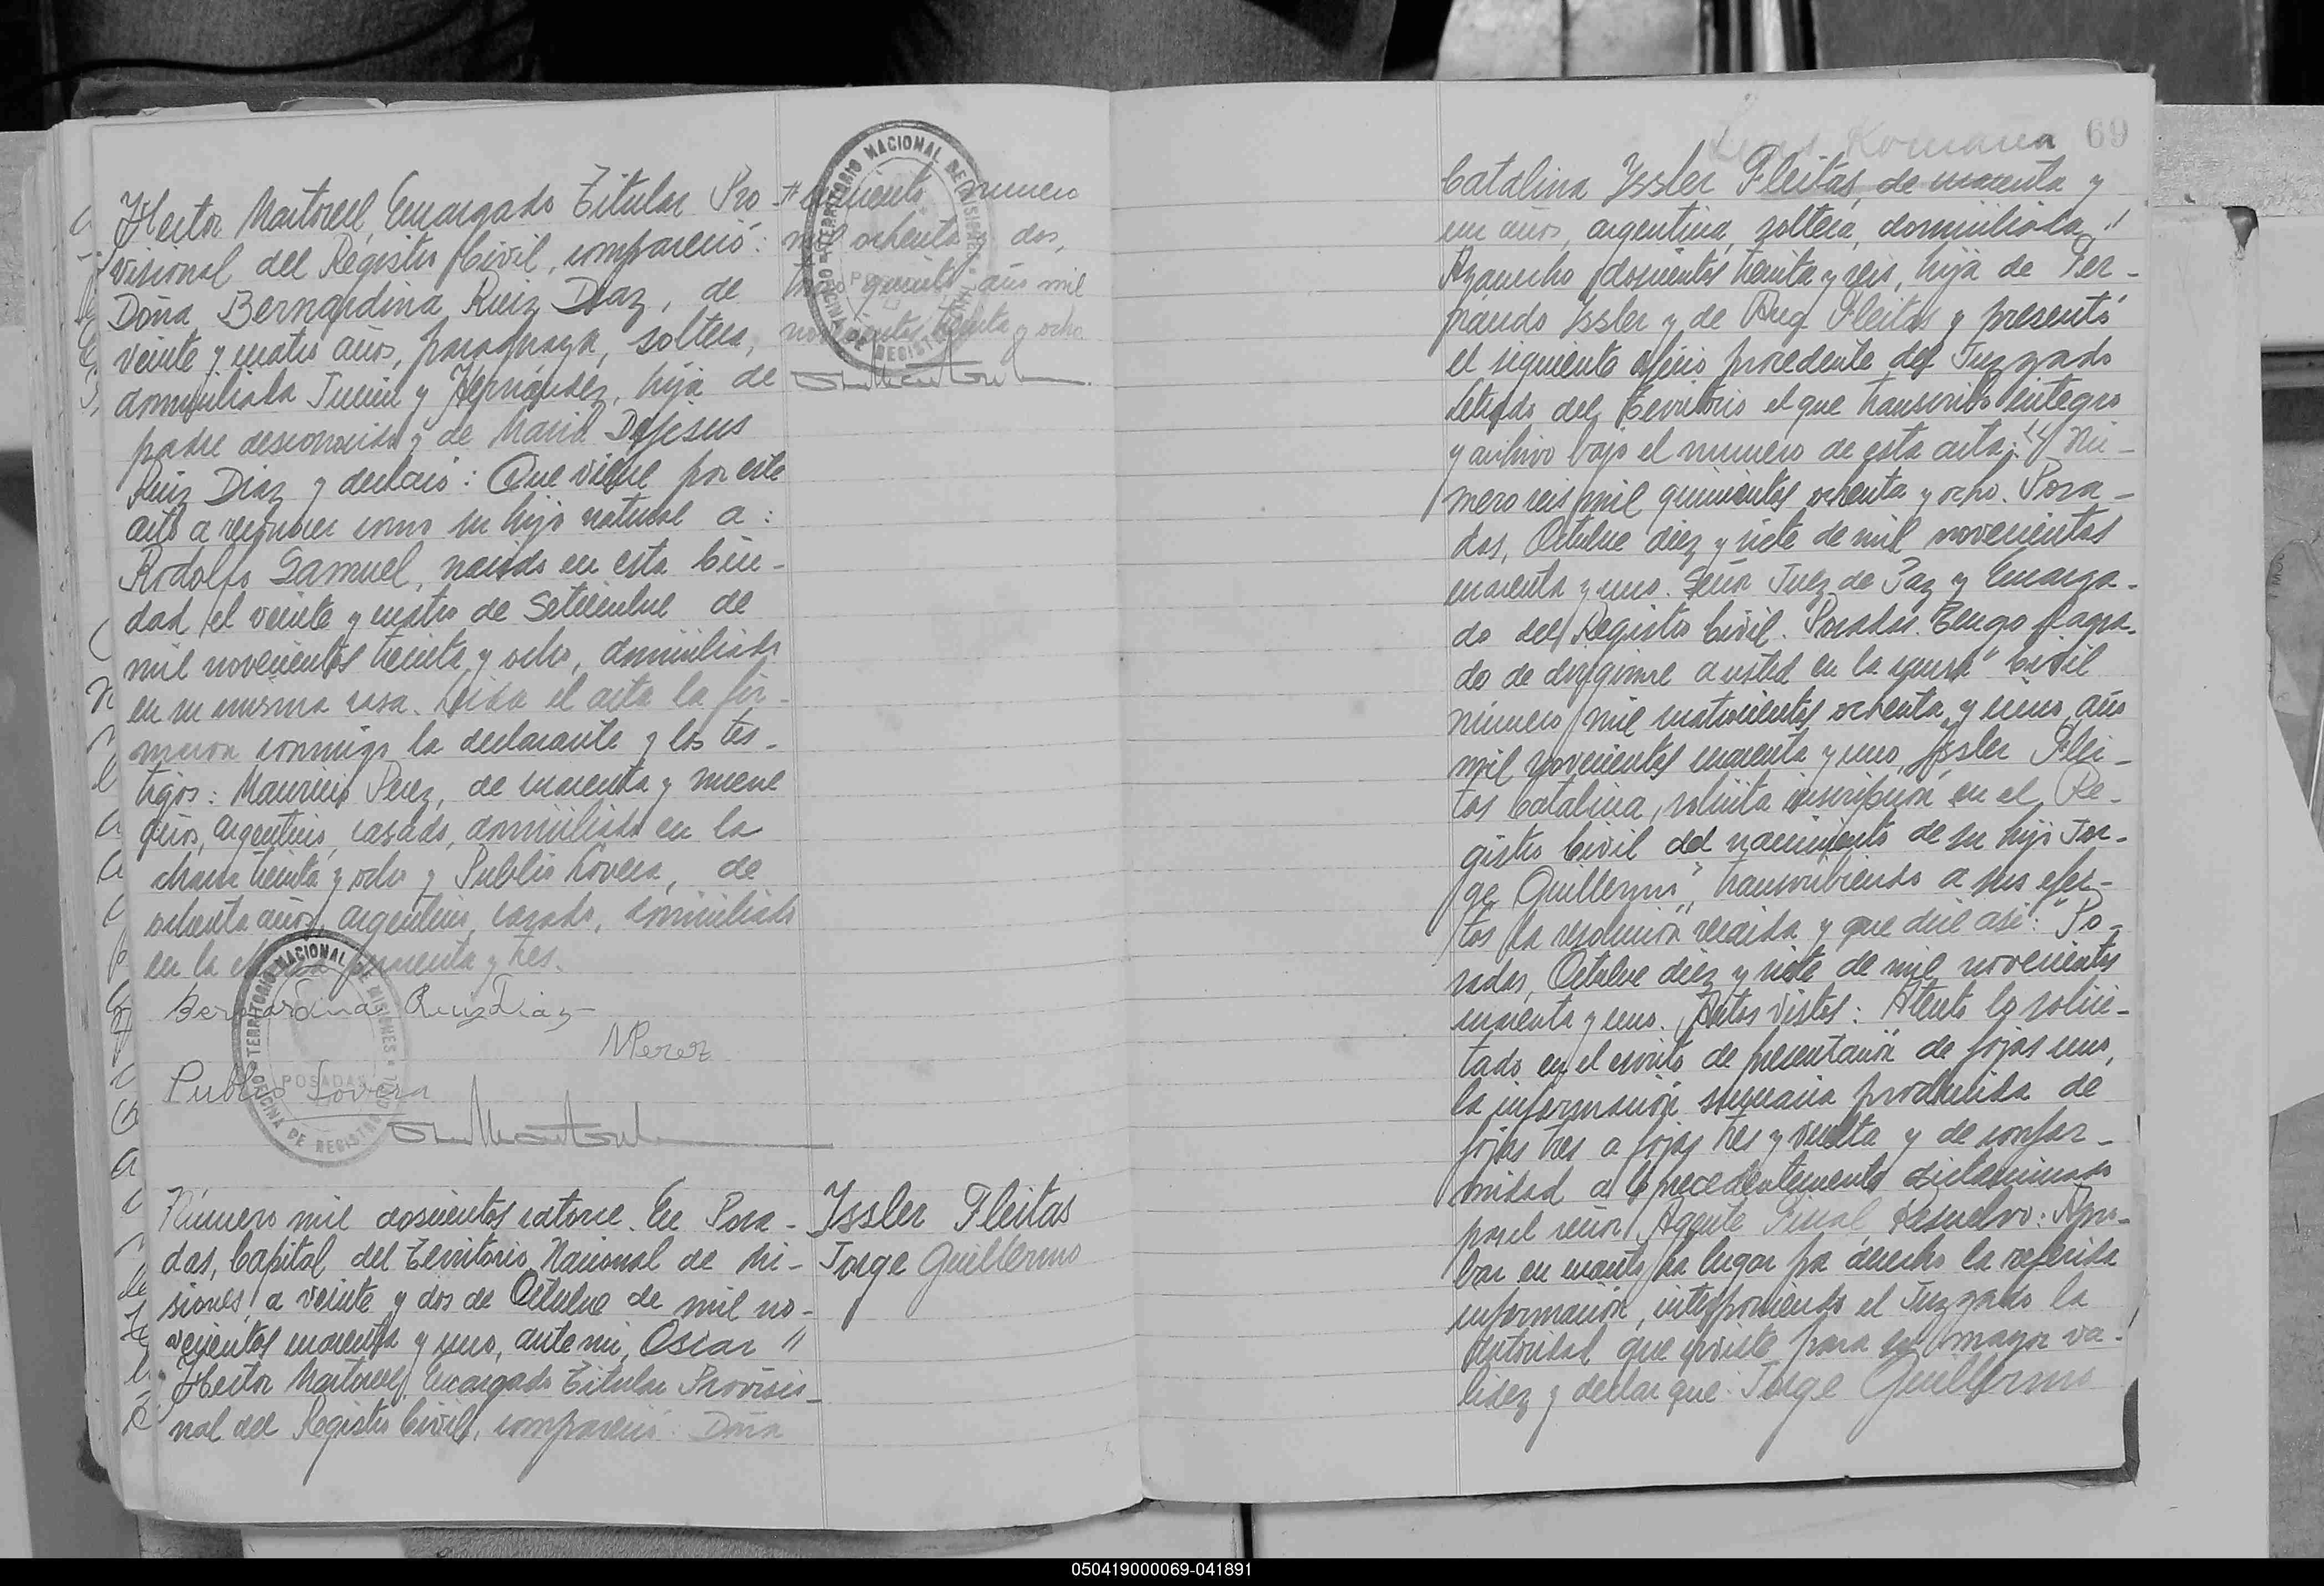 Hector Martorell, Encargado Titular Pro-
visional del Registro Civil, compareció:
Doña Bernardina Ruiz Diaz, de
veinte y cuatro años, paraguaya, soltera,
domiciliada Junin y Hernández, hija de
padre desconocido y de Maria Dejesus
Ruiz Diaz y declaró: Que viene por este
acto a reconocer como su hijo natural a:
Rodolfo Samuel, nacido en esta Ciu-
dad el veinte y cuatro de Setiembre de
mil novecientos treinta y ocho, domiciliado
en su misma casa. Leida el acta la fir-
maron conmigo la declarante y los tes-
tigos: Mauricio Perez, de cuarenta y nueve
años, argentino, casado, domiciliado en la
chacra treinta y ocho y Publio Lovera, de
ochenta años, argentino, casado, domiciliado
en la chacra cuarenta y tres.
Bernardina Ruiz Diaz
MPerez
Publio Lovera
TERRITORIO NACIONAL DE MISIONES
OFICINA DE REGISTRO CIVIL
POSADAS
numero
mil ochenta y dos,
tomo quinto año mil
novecientos treinta y ocho
TERRITORIO NACIONAL DE MISIONES
OFICINA DE REGISTRO CIVIL
POSADAS
Número mil doscientos catorce. En Posa-
das, Capital del Territorio Nacional de Mi-
siones, a veinte y dos de Octubre de mil no-
vecientos cuarenta y uno, ante mi, Oscar "
Hector Martorell, Encargado Titular Provisio-
nal del Registro Civil, compareció: Doña
Yssler Fleitas
Jorge Guillermo
Romana 69
Catalina Yssler Fleitas, de cuarenta y
un años, argentina, soltera, domiciliada "
Ayacucho doscientos treinta y seis, hija de Fer-
nando Yssler y de Fleitas y presentó
el siguiente oficio procedente del Juzgado
Letrado del Territorio el que transcribo integro
y archivo bajo el numero de esta acta: "Nú-
mero seis mil quinientos ochenta y ocho. Posa-
das, Octubre diez y siete de mil novecientos
cuarenta y uno. Señor Juez de Paz y Encarga-
do del Registro Civil. Posadas. Tengo el agra-
do de dirigirme a usted en la causa "Civil
número mil cuatrocientos ochenta y uno, año
mil novecientos cuarenta y uno, Yssler Flei-
tas Catalina, solicita inscripción en el Re-
gistro Civil del nacimiento de su hijo Jor-
ge Guillermo", transcribiendo a sus efec-
tos la resolución recaida y que dice asi: "Po-
sadas, Octubre diez y siete de mil novecientos
cuarenta y uno. Autos Vistos: Atento lo solici-
tado en el escrito de presentación de fojas uno,
la información sumaria producida de
fojas tres a fojas tres y vuelta y de confor-
midad a lo precedentemente dictaminado
por el señor Agente Fiscal, Resuelvo: Apro-
bar en cuanto ha lugar por derecho la referida
información, interponiendo el Juzgado la
autoridad que inviste para su mayor va-
lidez y declar que: Jorge Guillermo
050419000069-041891